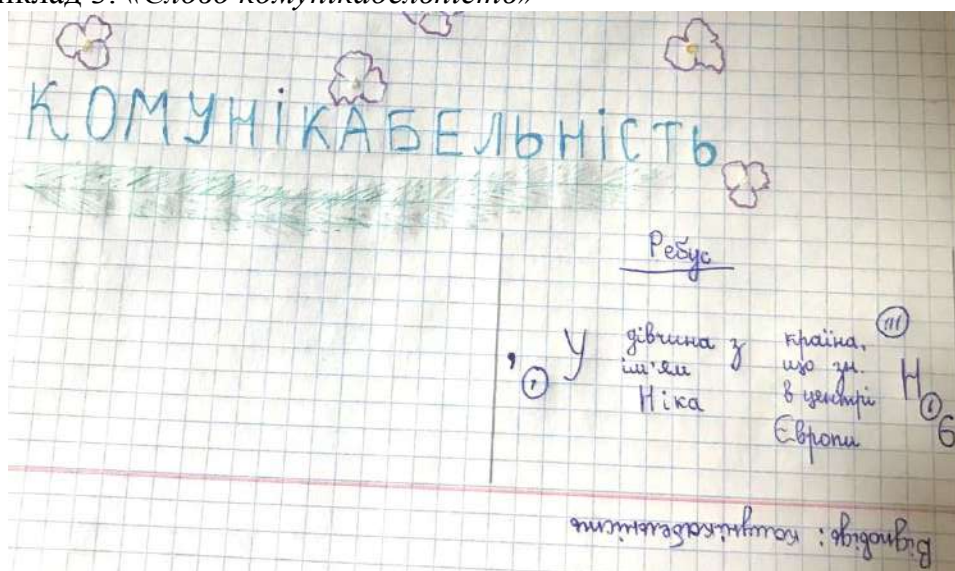 клад 3. «Слово комунікабельність»
КОМУНІКАБЕЛЬНІСТЬ
Ребус
, У дівчина з ім'ям Ніка країна, що зн. в центрі Європи Н
Відповідь: комунікабельність